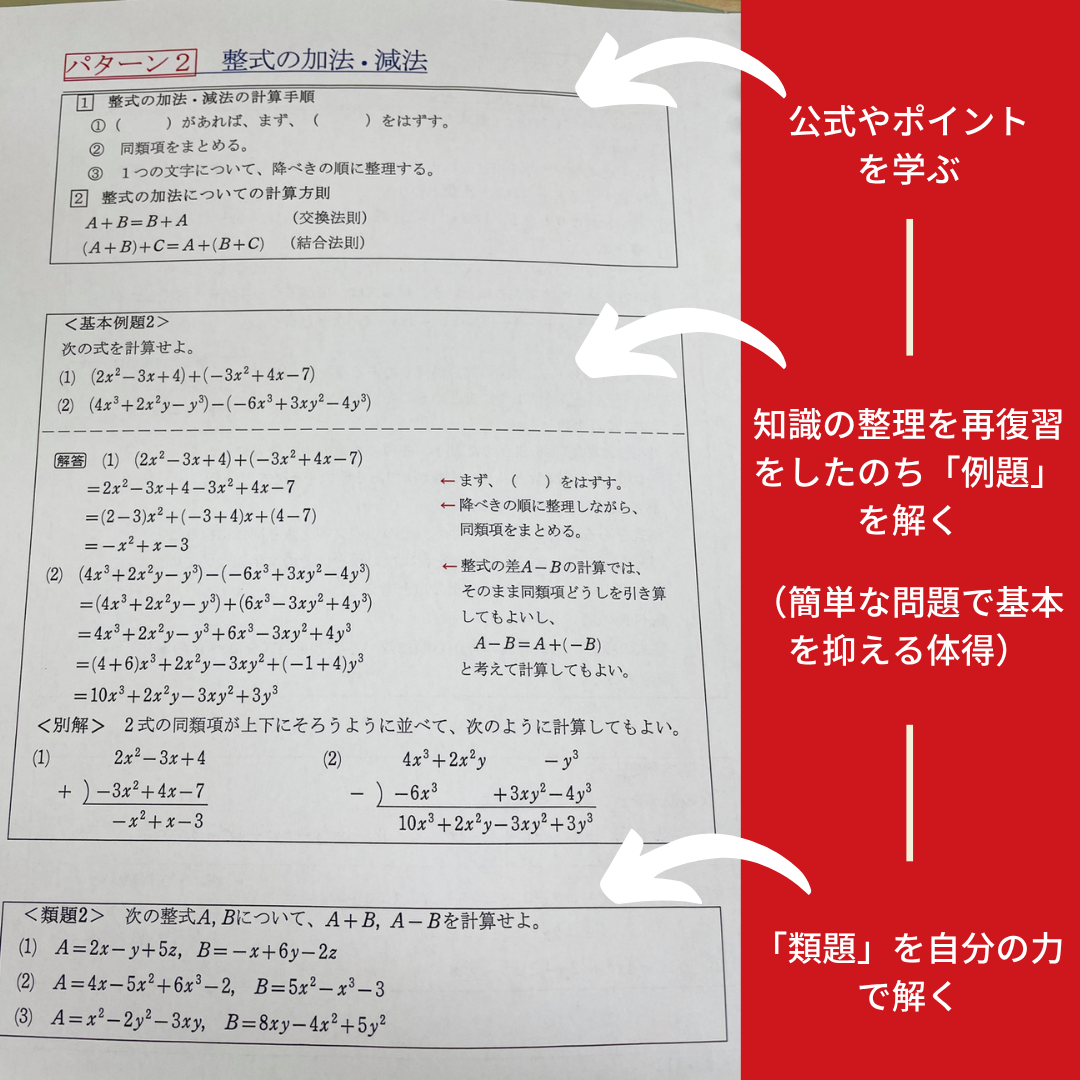 パターン2 整式の加法・減法
1 整式の加法・減法の計算手順
①( )があれば、まず、( )をはずす。
② 同類項をまとめる。
③ 1つの文字について、降べきの順に整理する。
2 整式の加法についての計算方則
A+B=B+A (交換法則)
(A+B)+C=A+(B+C) (結合法則)
<基本例題2>
次の式を計算せよ。
(1) (2x²−3x+4)+(−3x²+4x−7)
(2) (4x³+2x²y−y³)−(−6x³+3xy²−4y³)
解答 (1) (2x²−3x+4)+(−3x²+4x−7)
=2x²−3x+4−3x²+4x−7
←まず、( )をはずす。
=(2−3)x²+(−3+4)x+(4−7)
←降べきの順に整理しながら、
同類項をまとめる。
=−x²+x−3
(2) (4x³+2x²y−y³)−(−6x³+3xy²−4y³)
=(4x³+2x²y−y³)+(6x³−3xy²+4y³)
=4x³+2x²y−y³+6x³−3xy²+4y³
=(4+6)x³+2x²y−3xy²+(−1+4)y³
=10x³+2x²y−3xy²+3y³
←整式の差A−Bの計算では、
そのまま同類項どうしを引き算
してもよいし、
A−B=A+(−B)
と考えて計算してもよい。
<別解> 2式の同類項が上下にそろうように並べて、次のように計算してもよい。
(1) 2x²−3x+4
+ )−3x²+4x−7
−x²+x−3
(2) 4x³+2x²y −y³
− )−6x³ +3xy²−4y³
10x³+2x²y−3xy²+3y³
<類題2> 次の整式A, Bについて、A+B, A−Bを計算せよ。
(1) A=2x−y+5z, B=−x+6y−2z
(2) A=4x−5x²+6x³−2, B=5x²−x³−3
(3) A=x²−2y²−3xy, B=8xy−4x²+5y²
公式やポイント
を学ぶ
知識の整理を再復習
をしたのち「例題」
を解く
(簡単な問題で基本
を抑える体得)
「類題」を自分の力
で解く